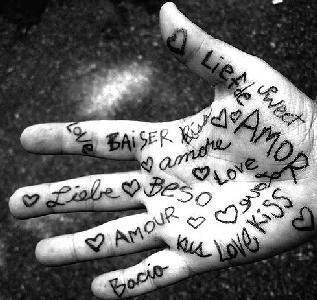 Liefde
Sweet
AMOR
love
BAiSER
Kiss
amore
Love
Liebe
BESO
AMOUR
kiss
Love
Kiss
Bacio